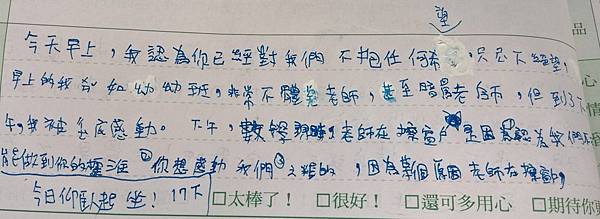 望
品
今天早上，我認為你已經對我們不抱任何希，只忍下絕望，
早上的我分 如幼幼班，非常不體 老師，甚至暗罵老師，但到了下
午，我被 底感動。下午，數學課時，老師在擦窗戶 是因為認為我們
能做到你的標准②你想感動我們③之類的，因為某個原因老師在擦窗，
今日仰臥起坐！17下
□太棒了！ □很好！ □還可多用心 □期待你
心
情